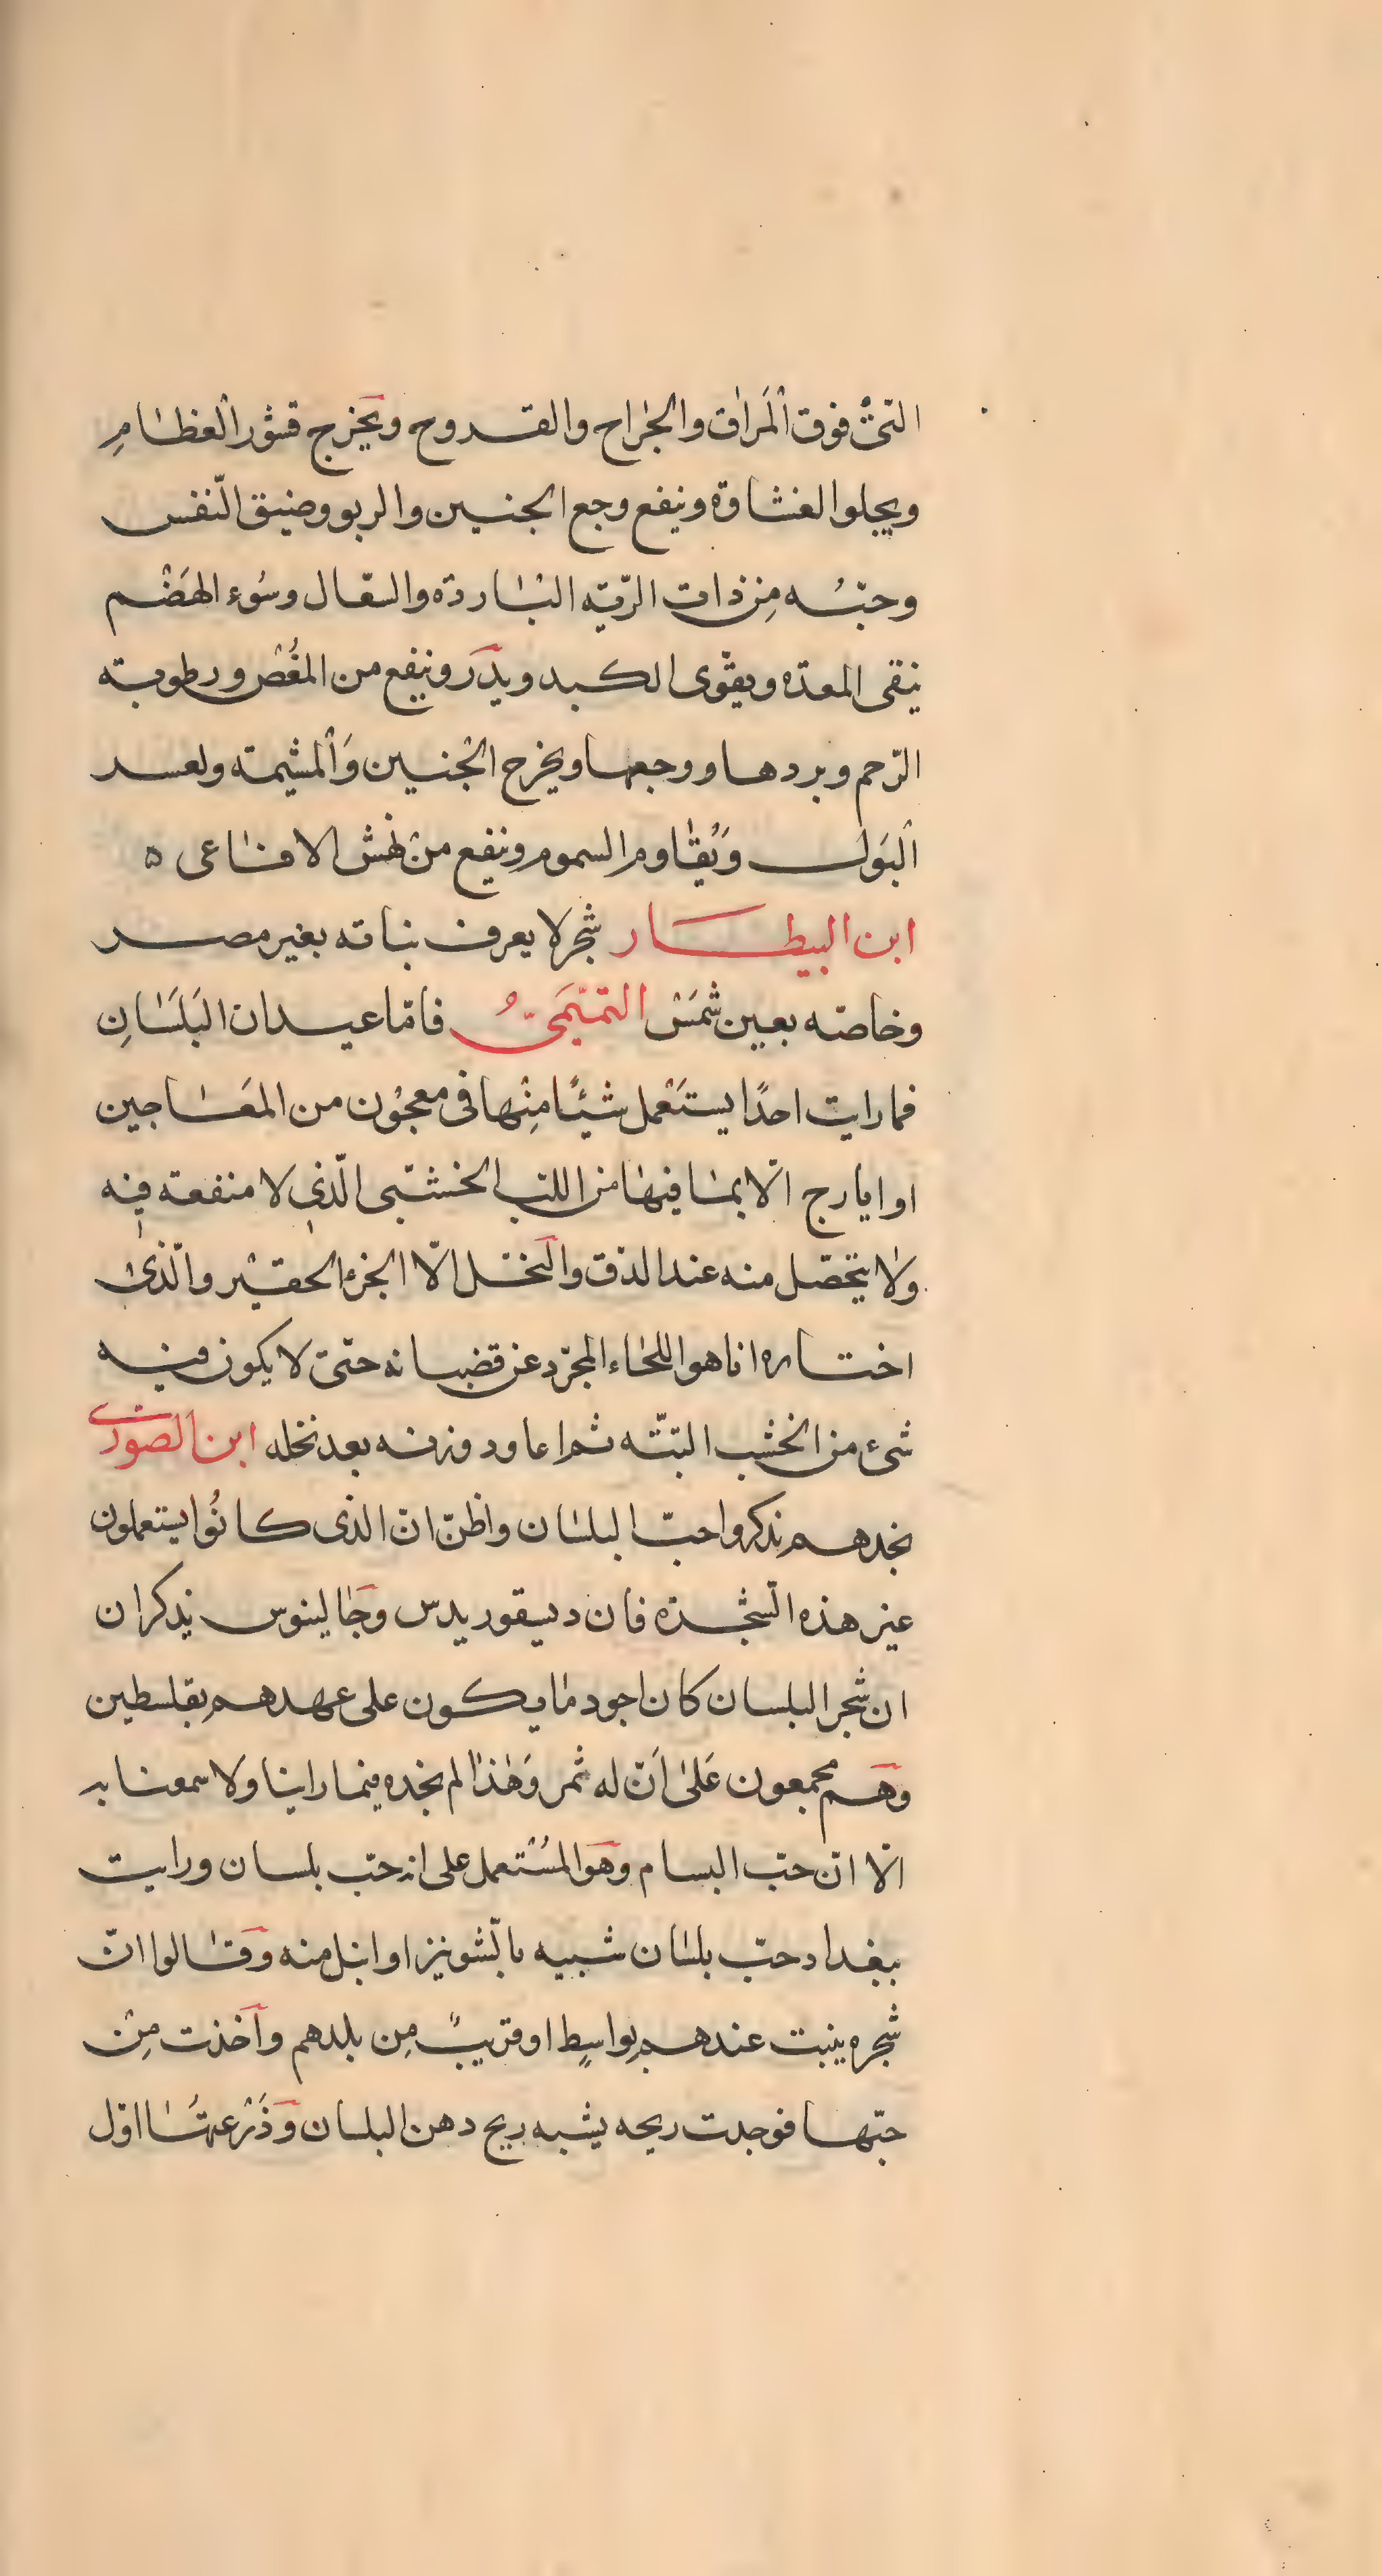 التىْ فوق المَراٰق والجٰراح والقـروح ويخرج قشور العظـٰام
ويجلوا الغشاوة وينفع وجع الجنبين والربو وضيق النّفس
وحبّـه مِن ذات الرّيّه البٰاردة والسّعـال وسُوء الهَضْـم
ينقى المعدّه ويقوّى الكـبد ويدر وينفع من المغُصْ ورطوبـته
الرّحم وبردهـا ووجعهـا ويخرج الجْنـين وَالمشيمـة ولعسـر
البَول ويُقٰاوم السموم وينفع من نهْش الافـٰاعى ه
ابن البيطـار شجر لا يعرف نباته بغير مصـر
وخاصّه بعين شمَسْ التمَيّمَىّ فامّا عيـدان البَلَسَانِ
فما رايت احدًا يستَعْمل شيئًا مِنْها فى معجوْن من المَعَـٰاجين
او ايارج الّا بمـٰا فيهٰا من اللب الخشبّى الّذى لا منفعـة فيه
ولٰا يتحصّل منه عند الدّق والنخـل الّا الجزء الحقيْر والّذى
اختـاره انا هو اللحٰاء المجرّد عن قضبانه حتّى لا يكون فيـه
شىء من الخشب البتّـه ثم اعاود وزنـه بعد نخله ابن الصورى
نجدهـم يذكروا حبّ البلسٰان واظنّ انّ الذى كانُوا يستعملون
غير هذه الشّجـرّه فان ديسقوريدس وجَٰالينوس يذكران
ان شجر البلسان كان اجود مٰا يكـون على عهدهم بفلسطين
وهَـم مجمعون عَلىٰ اَنّ له ثمر وَهٰذا لم نجده فيما راينا ولا سمعنا به
الّا انّ حبّ البسام وهَو المسُتْعمل على انه حبّ بلسان ورايت
ببغداد حبّ بلسٰان شبيه بالّشونيز او انبل منه وَقـٰالوا انّ
شجره ينبت عندهـم بواسطٍ او قريبً مِن بلدهم وآخذت مِنْ
حبّهـا فوجدت ريحه يشبه ريح دهن البلسان وَذَرْعتهُـٰا اوّل